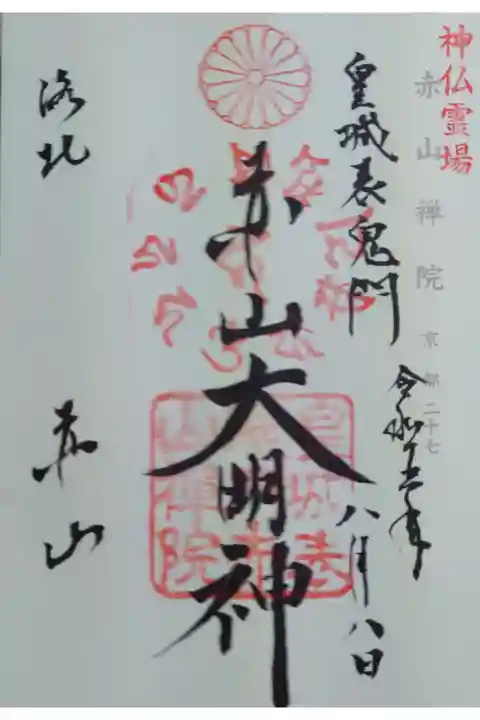 神仏霊場
赤山禅院 京都二十七
皇城表鬼門
八月八日
赤山大明神
皇城表
山禅院
洛北 赤山